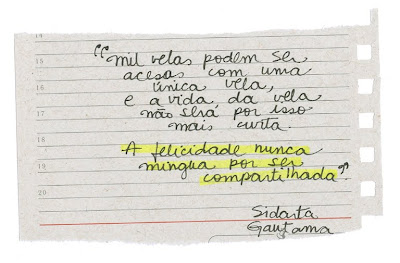 14
15
16
17
18
19
20
"mil velas podem ser
acesas com uma
única vela,
e a vida da vela
não será por isso
mais curta.
A felicidade nunca
mingua por ser
compartilhada".
Sidarta
Gautama